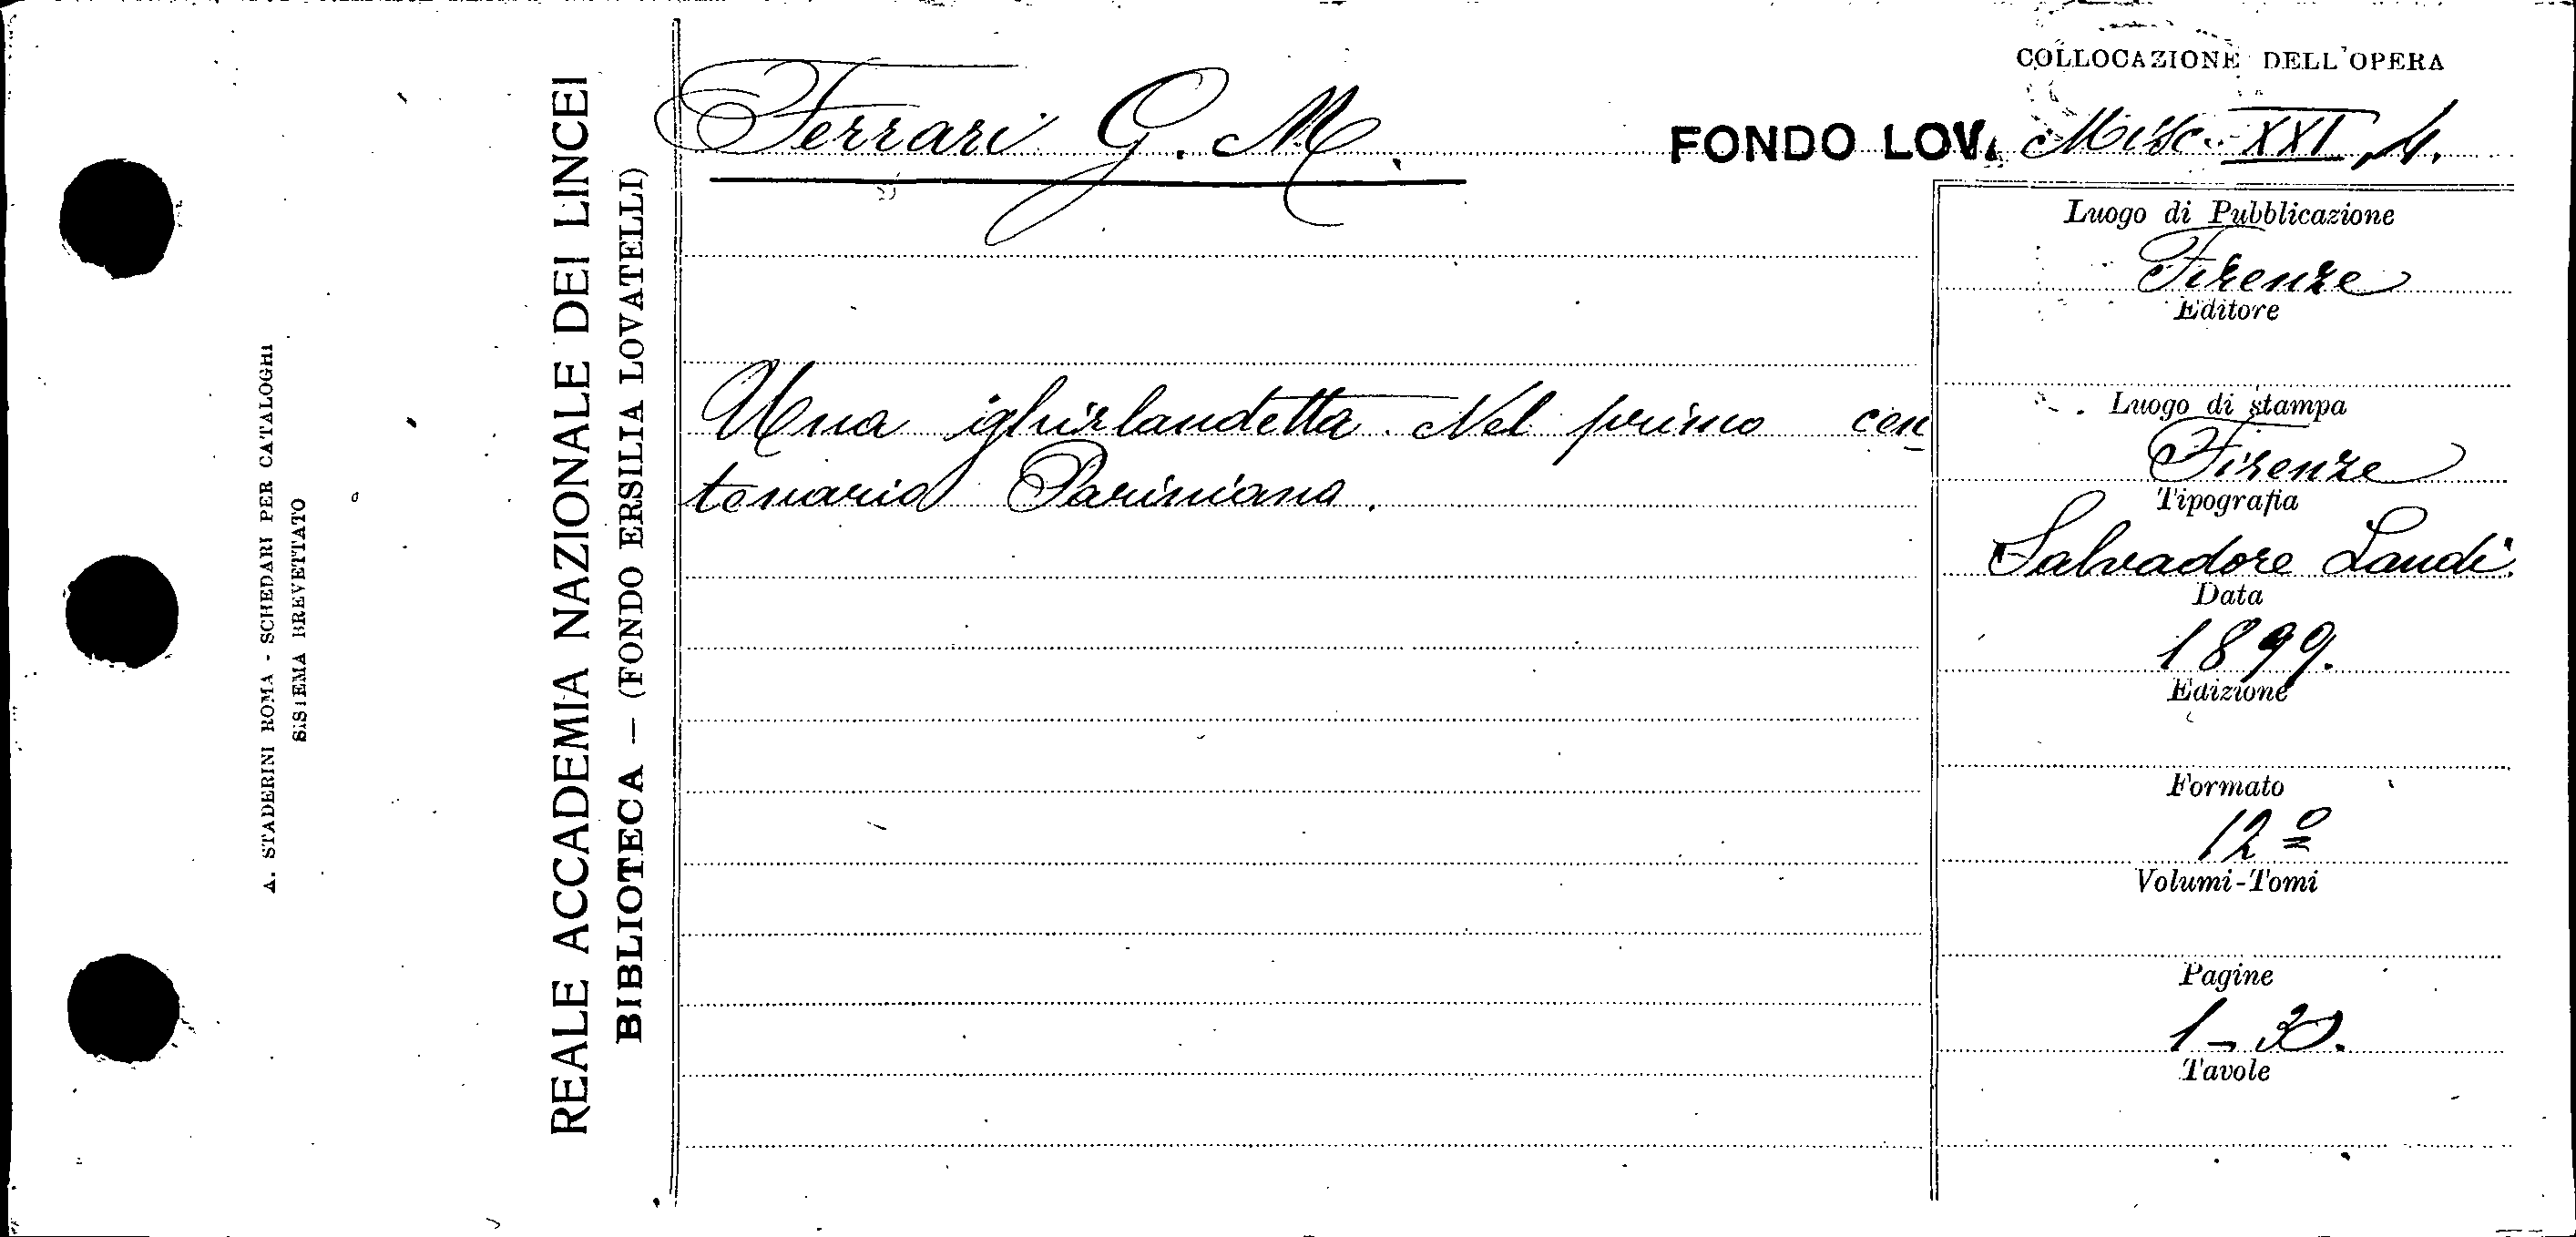 A. STADERINI ROMA - SCHEDARI PER CATALOGHI
SISTEMA BREVETTATO
REALE ACCADEMIA NAZIONALE DEI LINCEI
BIBLIOTECA — (FONDO ERSILIA LOVATELLI)
COLLOCAZIONE DELL'OPERA
Ferrari G. M.
FONDO LOV. Misc. XXI, 4.
Una ghirlandetta. Nel primo cen
tenario Pariniano.
Luogo di Pubblicazione
Firenze
Editore
Luogo di stampa
Firenze
Tipografia
Salvadore Landi.
Data
1899.
Edizione
Formato
12º
Volumi-Tomi
Pagine
1-30.
Tavole